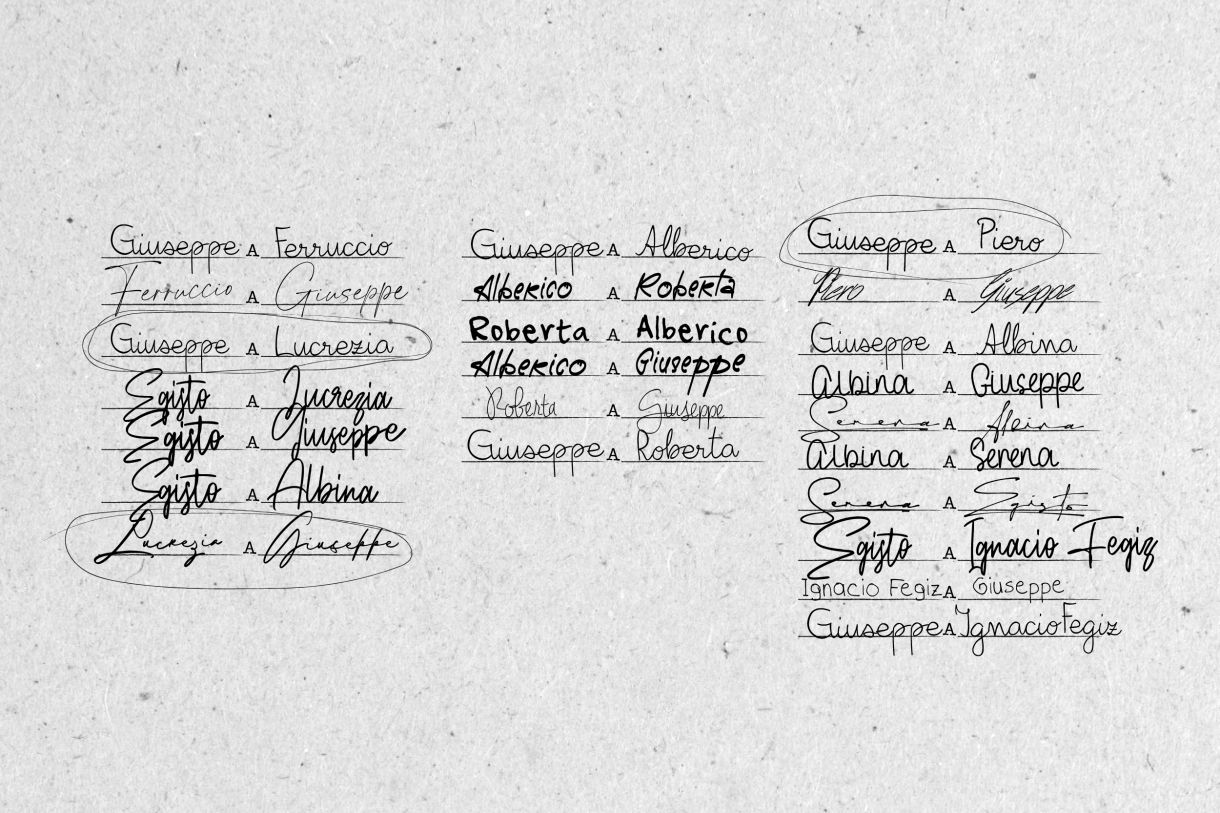 Giuseppe A Ferruccio
Ferruccio A Giuseppe
Giuseppe A Lucrezia
Egisto A Lucrezia
Egisto A Giuseppe
Egisto A Albina
Lucrezia A Giuseppe
Giuseppe A Alberico
Alberico A Roberta
Roberta A Alberico
Alberico A Giuseppe
Roberta A Giuseppe
Giuseppe A Roberta
Giuseppe A Piero
Piero A Giuseppe
Giuseppe A Albina
Albina A Giuseppe
Serena A Albina
Albina A Serena
Serena A Egisto
Egisto A Ignacio Fegiz
Ignacio Fegiz A Giuseppe
Giuseppe A Ignacio Fegiz